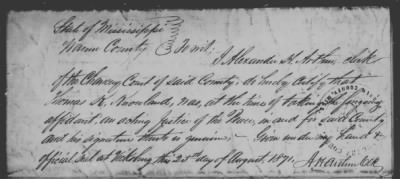 State of Mississippi
Warren County } To wit:
I Alexander H. Arthur, clerk
of the Chancery Court of said County, do hereby certify that
Thomas R. was, at the time of taking the foregoing
affidavit, an acting Justice of the Peace, in and for said County
and his signature thereto is genuine; Given under my hand &
official seal at Vicksburg this 25th day of August, 1871.
A H Arthur Clk